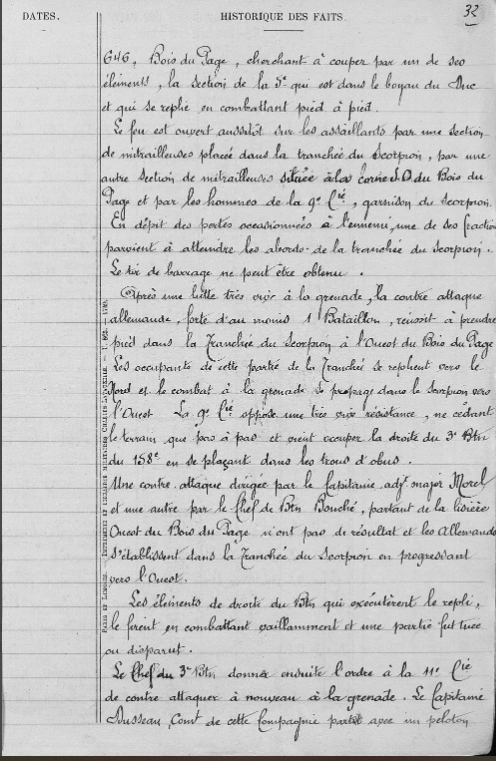 32
DATES. HISTORIQUE DES FAITS.
646, Bois du Page, cherchant à couper par un de ses
éléments, la section de la 5e qui est dans le boyau du Duc
et qui se replie en combattant pied à pied.
Le feu est ouvert aussitôt sur les assaillants par une section
de mitrailleuses placée dans la tranchée du Scorpion, par une
autre section de mitrailleuses située à la corne S.O du Bois du
Page et par les hommes de la 9e Cie, garnison du Scorpion.
En dépit des pertes occasionnées à l'ennemi, une de ses fractions
parvient à atteindre les abords de la tranchée du Scorpion.
Le tir de barrage ne peut être obtenu.
Après une lutte très vive à la grenade, la contre attaque
allemande, forte d'au moins 1 Bataillon, réussit à prendre
pied dans la Tranchée du Scorpion à l'Ouest du Bois du Page
Les occupants de cette partie de la Tranchée se replient vers le
Nord et le combat à la grenade se propage dans le Scorpion vers
l'Ouest La 9e Cie oppose une très vive résistance, ne cédant
le terrain que pas à pas et vient occuper la droite du 3e Btn
du 158e en se plaçant dans les trous d'obus.
Une contre attaque dirigée par le Capitaine adjt major Morel
et une autre par le Chef de Btn Bouché, partant de la lisière
Ouest du Bois du Page n'ont pas de résultat et les Allemands
s'établissent dans la Tranchée du Scorpion en progressant
vers l'Ouest.
Les éléments de droite du Btn qui exécutèrent le repli,
le firent en combattant vaillamment et une partie fut tuée
ou disparut.
Le Chef du 3e Btn donner ensuite l'ordre à la 11e Cie
de contre attaquer à nouveau à la grenade. Le Capitaine
Dusseau, Comt de cette Compagnie partit avec un peloton